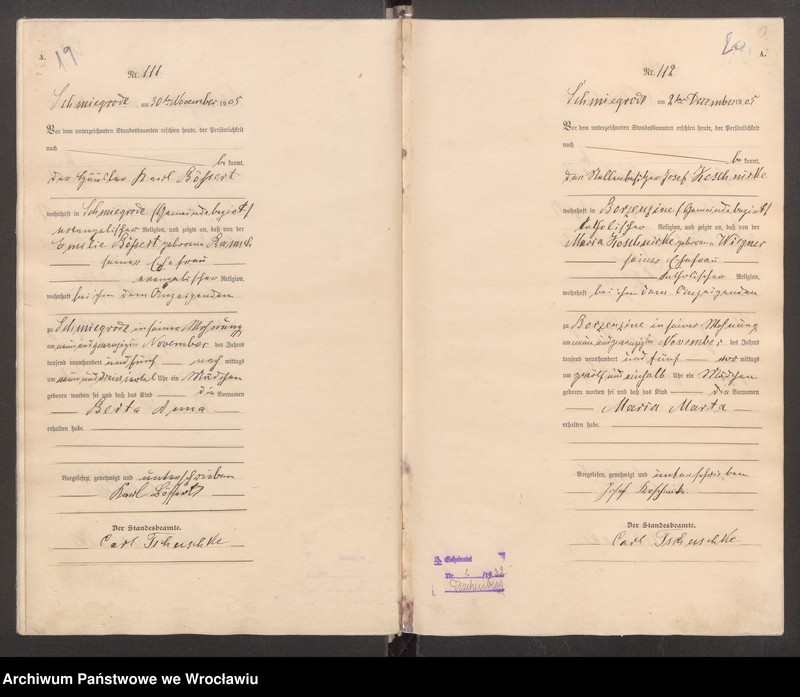 A.
19
Nr. 111
Schmiegrode am 30ten November 1905
Vor dem unterzeichneten Standesbeamten erschien heute, der Persönlichkeit
nach
be kannt,
der Häusler Karl Bössert
wohnhaft in Schmiegrode (Gemeindebezirk)
evangelischer Religion, und zeigte an, daß von der
Emilie Bössert geborene
seiner Ehefrau
evangelischer Religion,
wohnhaft bei ihm dem Anzeigenden
zu Schmiegrode in seiner Wohnung
am neunundzwanzigsten November des Jahres
tausend neunhundert und fünf nach mittags
um neun und drei viertel Uhr ein Mädchen
geboren worden sei und daß das Kind die Vornamen
Berta Anna
erhalten habe.
Vorgelesen, genehmigt und unterschrieben
Karl Bössert
Der Standesbeamte.
Carl Tschuschke
A.
20.
Nr. 112
Schmiegrode am 2ten Dezember 1905
Vor dem unterzeichneten Standesbeamten erschien heute, der Persönlichkeit
nach
be kannt,
der Stellenbesitzer Josef Koschnicke
wohnhaft in Borzenzine (Gemeindebezirk)
katholischer Religion, und zeigte an, daß von der
Maria Koschnicke geborene Wiezner
seiner Ehefrau
katholischer Religion,
wohnhaft bei ihm dem Anzeigenden
zu Borzenzine in seiner Wohnung
am neunundzwanzigsten November des Jahres
tausend neunhundert und fünf vor mittags
um zwölf und einhalb Uhr ein Mädchen
geboren worden sei und daß das Kind die Vornamen
Maria Marta
erhalten habe.
Vorgelesen, genehmigt und unterschrieben
Josef Koschnicke.
Der Standesbeamte.
Carl Tschuschke
Nr. 2
Trachenberg
Archiwum Państwowe we Wrocławiu